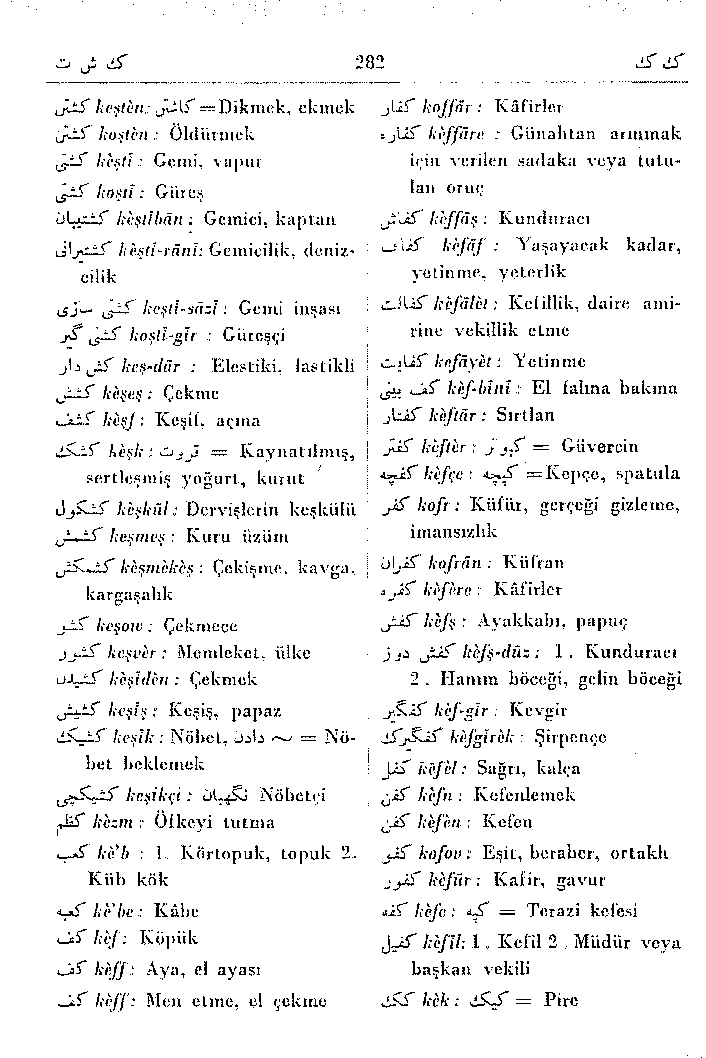 ك ش ت 282 ك ك
كشتن keştèn: كاشتن = Dikmek, ekmek
كشتن koştèn : Öldürmek
كشتى kèştî : Gemi, vapur
كشتى koştî : Güreş
كشتيبان kèştîbān : Gemici, kaptan
كشتيرانى kèştî-rānî: Gemicilik, deniz-
cilik
كشتى سازى keştî-sāzî : Gemi inşası
كشتى گير koştî-gîr : Güreşçi
كش دار keş-dār : Elestiki, lastikli
كشش kèşeş : Çekme
كشف kèşf : Keşif, açma
كشك kèşk : ترو = Kaynatılmış,
sertleşmiş yoğurt, kurut
كشكول kèşkûl : Dervişlerin keşkülü
كشمش keşmeş : Kuru üzüm
كشمكش kèşmèkèş : Çekişme, kavga,
kargaşalık
كشو keşow : Çekmece
كشور keşvèr : Memleket, ülke
كشيدن kèşîdèn : Çekmek
كشيش keşîş : Keşiş, papaz
كشيك keşîk : Nöbet, دادن ~ = Nö-
bet beklemek
كشيكچى keşîkçi : نگهبان Nöbetçi
كظم kèzm : Öfkeyi tutma
كعب kè'b : 1. Körtopuk, topuk 2.
Küb kök
كعبه kè'be : Kâbe
كف kèf : Köpük
كف kèff : Aya, el ayası
كف kèff : Men etme, el çekme
كفار koffār : Kâfirler
كفاره kèffāre : Günahtan arınmak
için verilen sadaka veya tutu-
lan oruç
كفاش kèffāş : Kunduracı
كفاف kèfāf : Yaşayacak kadar,
yetinme, yeterlik
كفالت kèfālèt : Kefillik, daire ami-
rine vekillik etme
كفايت kefāyèt : Yetinme
كف بينى kèf-bînî : El falına bakma
كفتار kèftār : Sırtlan
كفتر kèftèr : كبوتر = Güvercin
كفچه kèfçe : كپچه = Kepçe, spatula
كفر kofr : Küfür, gerçeği gizleme,
imansızlık
كفران kofrān : Küfran
كفره kèfère : Kâfirler
كفش kèfş : Ayakkabı, papuç
كفش دوز kèfş-dûz : 1 . Kunduracı
2 . Hanım böceği, gelin böceği
كفگير kèf-gîr : Kevgir
كفگيرك kèfgîrèk : Şirpençe
كفل kèfèl : Sağrı, kalça
كفن kèfn : Kefenlemek
كفن kèfèn : Kefen
كفو kofov : Eşit, beraber, ortaklı
كفور kèfûr : Kafir, gavur
كفه kèfe : كپه = Terazi kefesi
كفيل kèfîl: 1 . Kefil 2 . Müdür veya
başkan vekili
كك kèk : كيك = Pire